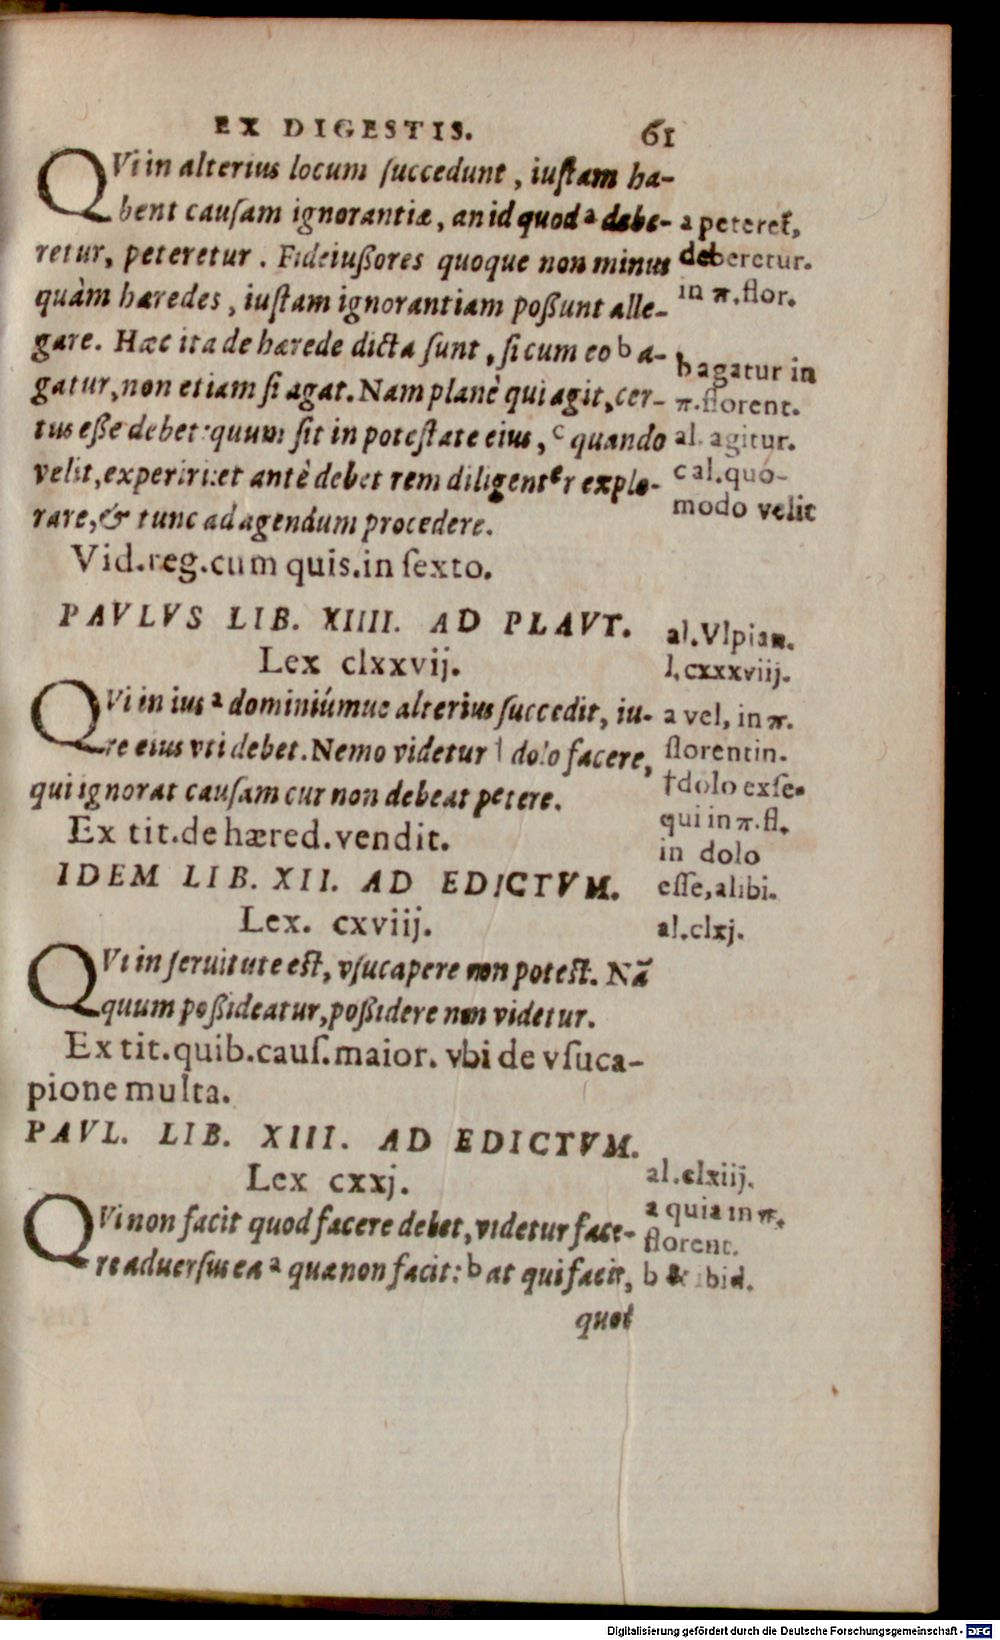 EX DIGESTIS. 61
QVi in alterius locum ſuccedunt, iuſtam ha-
bent cauſam ignorantiæ, an id quod a debe-
retur, peteretur. Fideiußores quoque non minus
quàm hæredes, iuſtam ignorantiam poßunt alle-
gare. Hæc ita de hærede dicta ſunt, ſi cum eo b a-
gatur, non etiam ſi agat. Nam planè qui agit, cer-
tus eße debet: quum ſit in poteſtate eius, c quando
velit, experiri: et antè debet rem diligenter explo-
rare, & tunc ad agendum procedere.
Vid. reg. cum quis. in ſexto.
a peteret̃,
deberetur.
in π. flor.
b agatur in
π. florent.
al. agitur.
c al. quo-
modo velit
PAVLVS LIB. XIIII. AD PLAVT.
Lex clxxvij.
QVi in ius a dominiúmue alterius ſuccedit, iu-
re eius vti debet. Nemo videtur † dolo facere,
qui ignorat cauſam cur non debeat petere.
Ex tit. de hæred. vendit.
al. Vlpian.
l. cxxxviij.
a vel, in π.
florentin.
† dolo exſe-
qui in π. fl.
in dolo
eſſe, alibi.
IDEM LIB. XII. AD EDICTVM.
Lex. cxviij.
QVi in ſeruitute eſt, vſucapere non poteſt. Nã
quum poßideatur, poßidere non videtur.
Ex tit. quib. cauſ. maior. vbi de vſuca-
pione multa.
al. clxj.
PAVL. LIB. XIII. AD EDICTVM.
Lex cxxj.
QVi non facit quod facere debet, videtur face-
re aduerſus ea a quæ non facit: b at qui facit,
quot
al. clxiij.
a quia in π.
florent.
b & ibid.
Digitalisierung gefördert durch die Deutsche Forschungsgemeinschaft - DFG